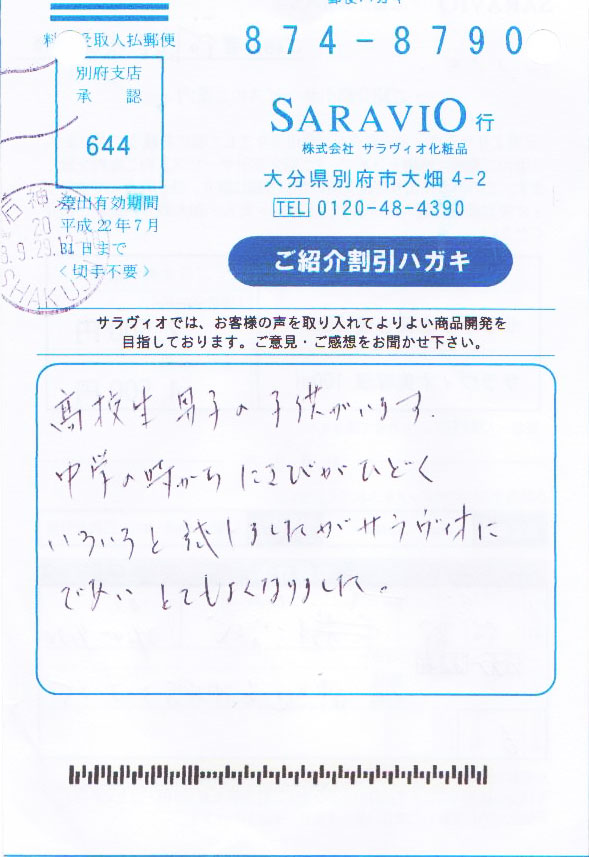 郵便ハガキ
料金受取人払郵便
874-8790
別府支店
承 認
644
差出有効期間
平成22年7月
31日まで
〈切手不要〉
SARAVIO 行
株式会社 サラヴィオ化粧品
大分県別府市大畑 4-2
TEL 0120-48-4390
ご紹介割引ハガキ
サラヴィオでは、お客様の声を取り入れてよりよい商品開発を
目指しております。ご意見・ご感想をお聞かせ下さい。
高校生男子の子供がいます.
中学の時から にきびがひどく
いろいろと試しましたがサラヴィオに
で会い とてもよくなりました。
石神
20
9.29.12
SHAKUJ